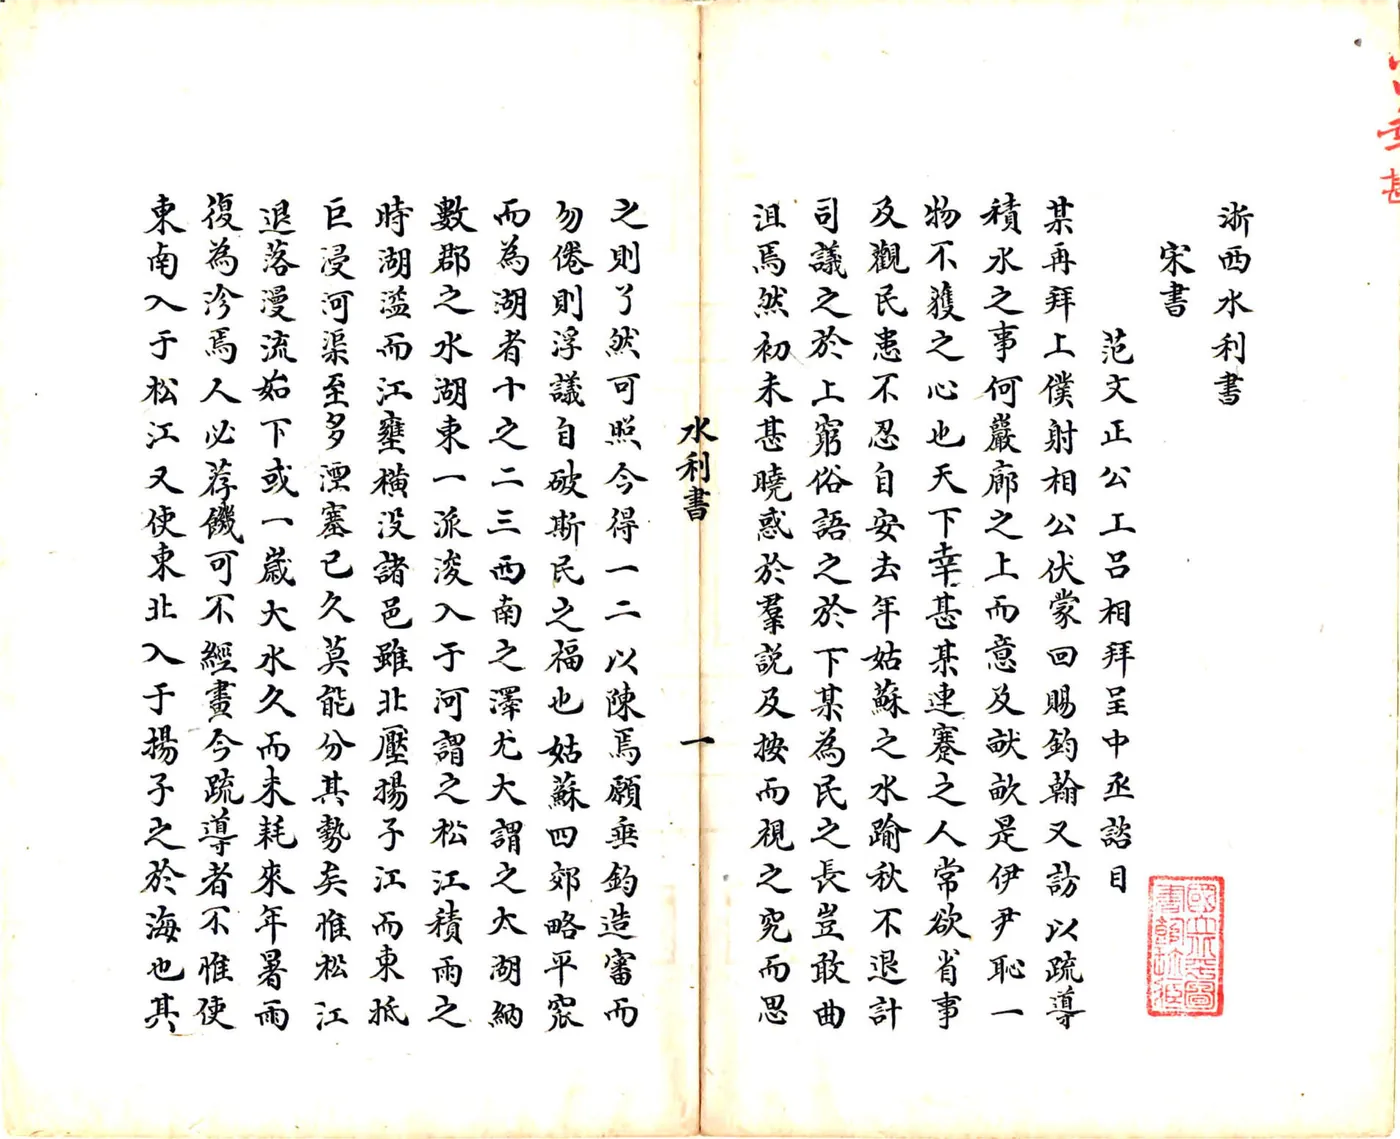 浙西水利書
宋書
范文正公工呂相拜呈中丞諮目
某再拜上僕射相公伏蒙回賜鈞翰又訪以疏導
積水之事何巖廊之上而意及畎畝是伊尹恥一
物不獲之心也天下幸甚某連蹇之人常欲省事
及觀民患不忍自安去年姑蘇之水踰秋不退計
司議之於上窮俗語之於下某為民之長豈敢曲
沮焉然初未甚曉惑於羣説及按而視之究而思
水利書
一
之則了然可照今得一二以陳焉願垂鈞造審而
勿倦則浮議自破斯民之福也姑蘇四郊略平窊
而為湖者十之二三西南之澤尤大謂之太湖納
數郡之水湖東一派浚入于河謂之松江積雨之
時湖溢而江壅橫没諸邑雖北壓揚子江而東抵
巨浸河渠至多湮塞已久莫能分其勢矣惟松江
退落漫流始下或一歲大水久而未耗來年暑雨
復為沴焉人必荐饑可不經畫今疏導者不惟使
東南入于松江又使東北入于揚子之於海也其
國立北平圖
書館珍藏